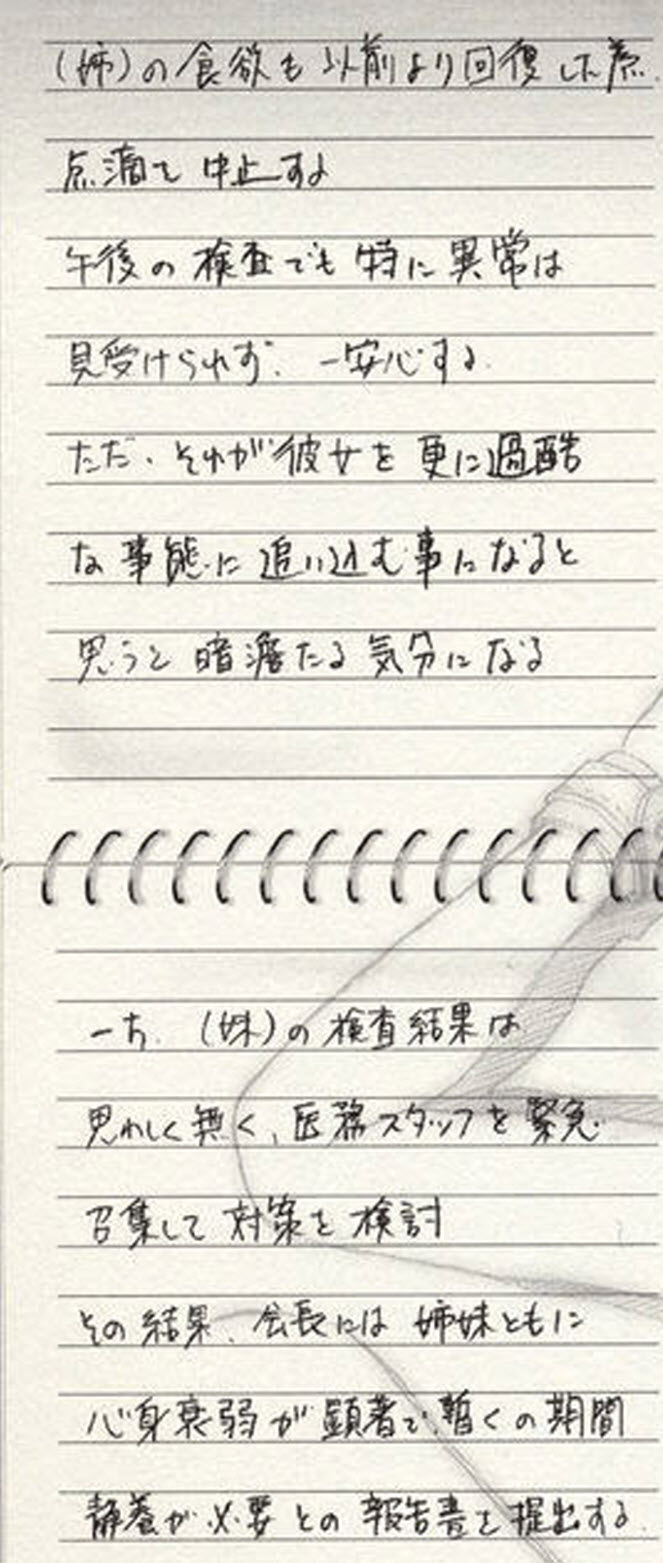 (姉)の食欲も以前より回復した為
点滴を中止する
午後の検査でも特に異常は
見受けられず、一安心する.
ただ、それが彼女を更に過酷
な事態に追い込む事になると
思うと暗澹たる気分になる
一方、(妹)の検査結果は
思わしく無く、医務スタッフを緊急
召集して対策を検討
その結果、会長には姉妹ともに
心身衰弱が顕著で、暫くの期間
静養が必要との報告書を提出する.